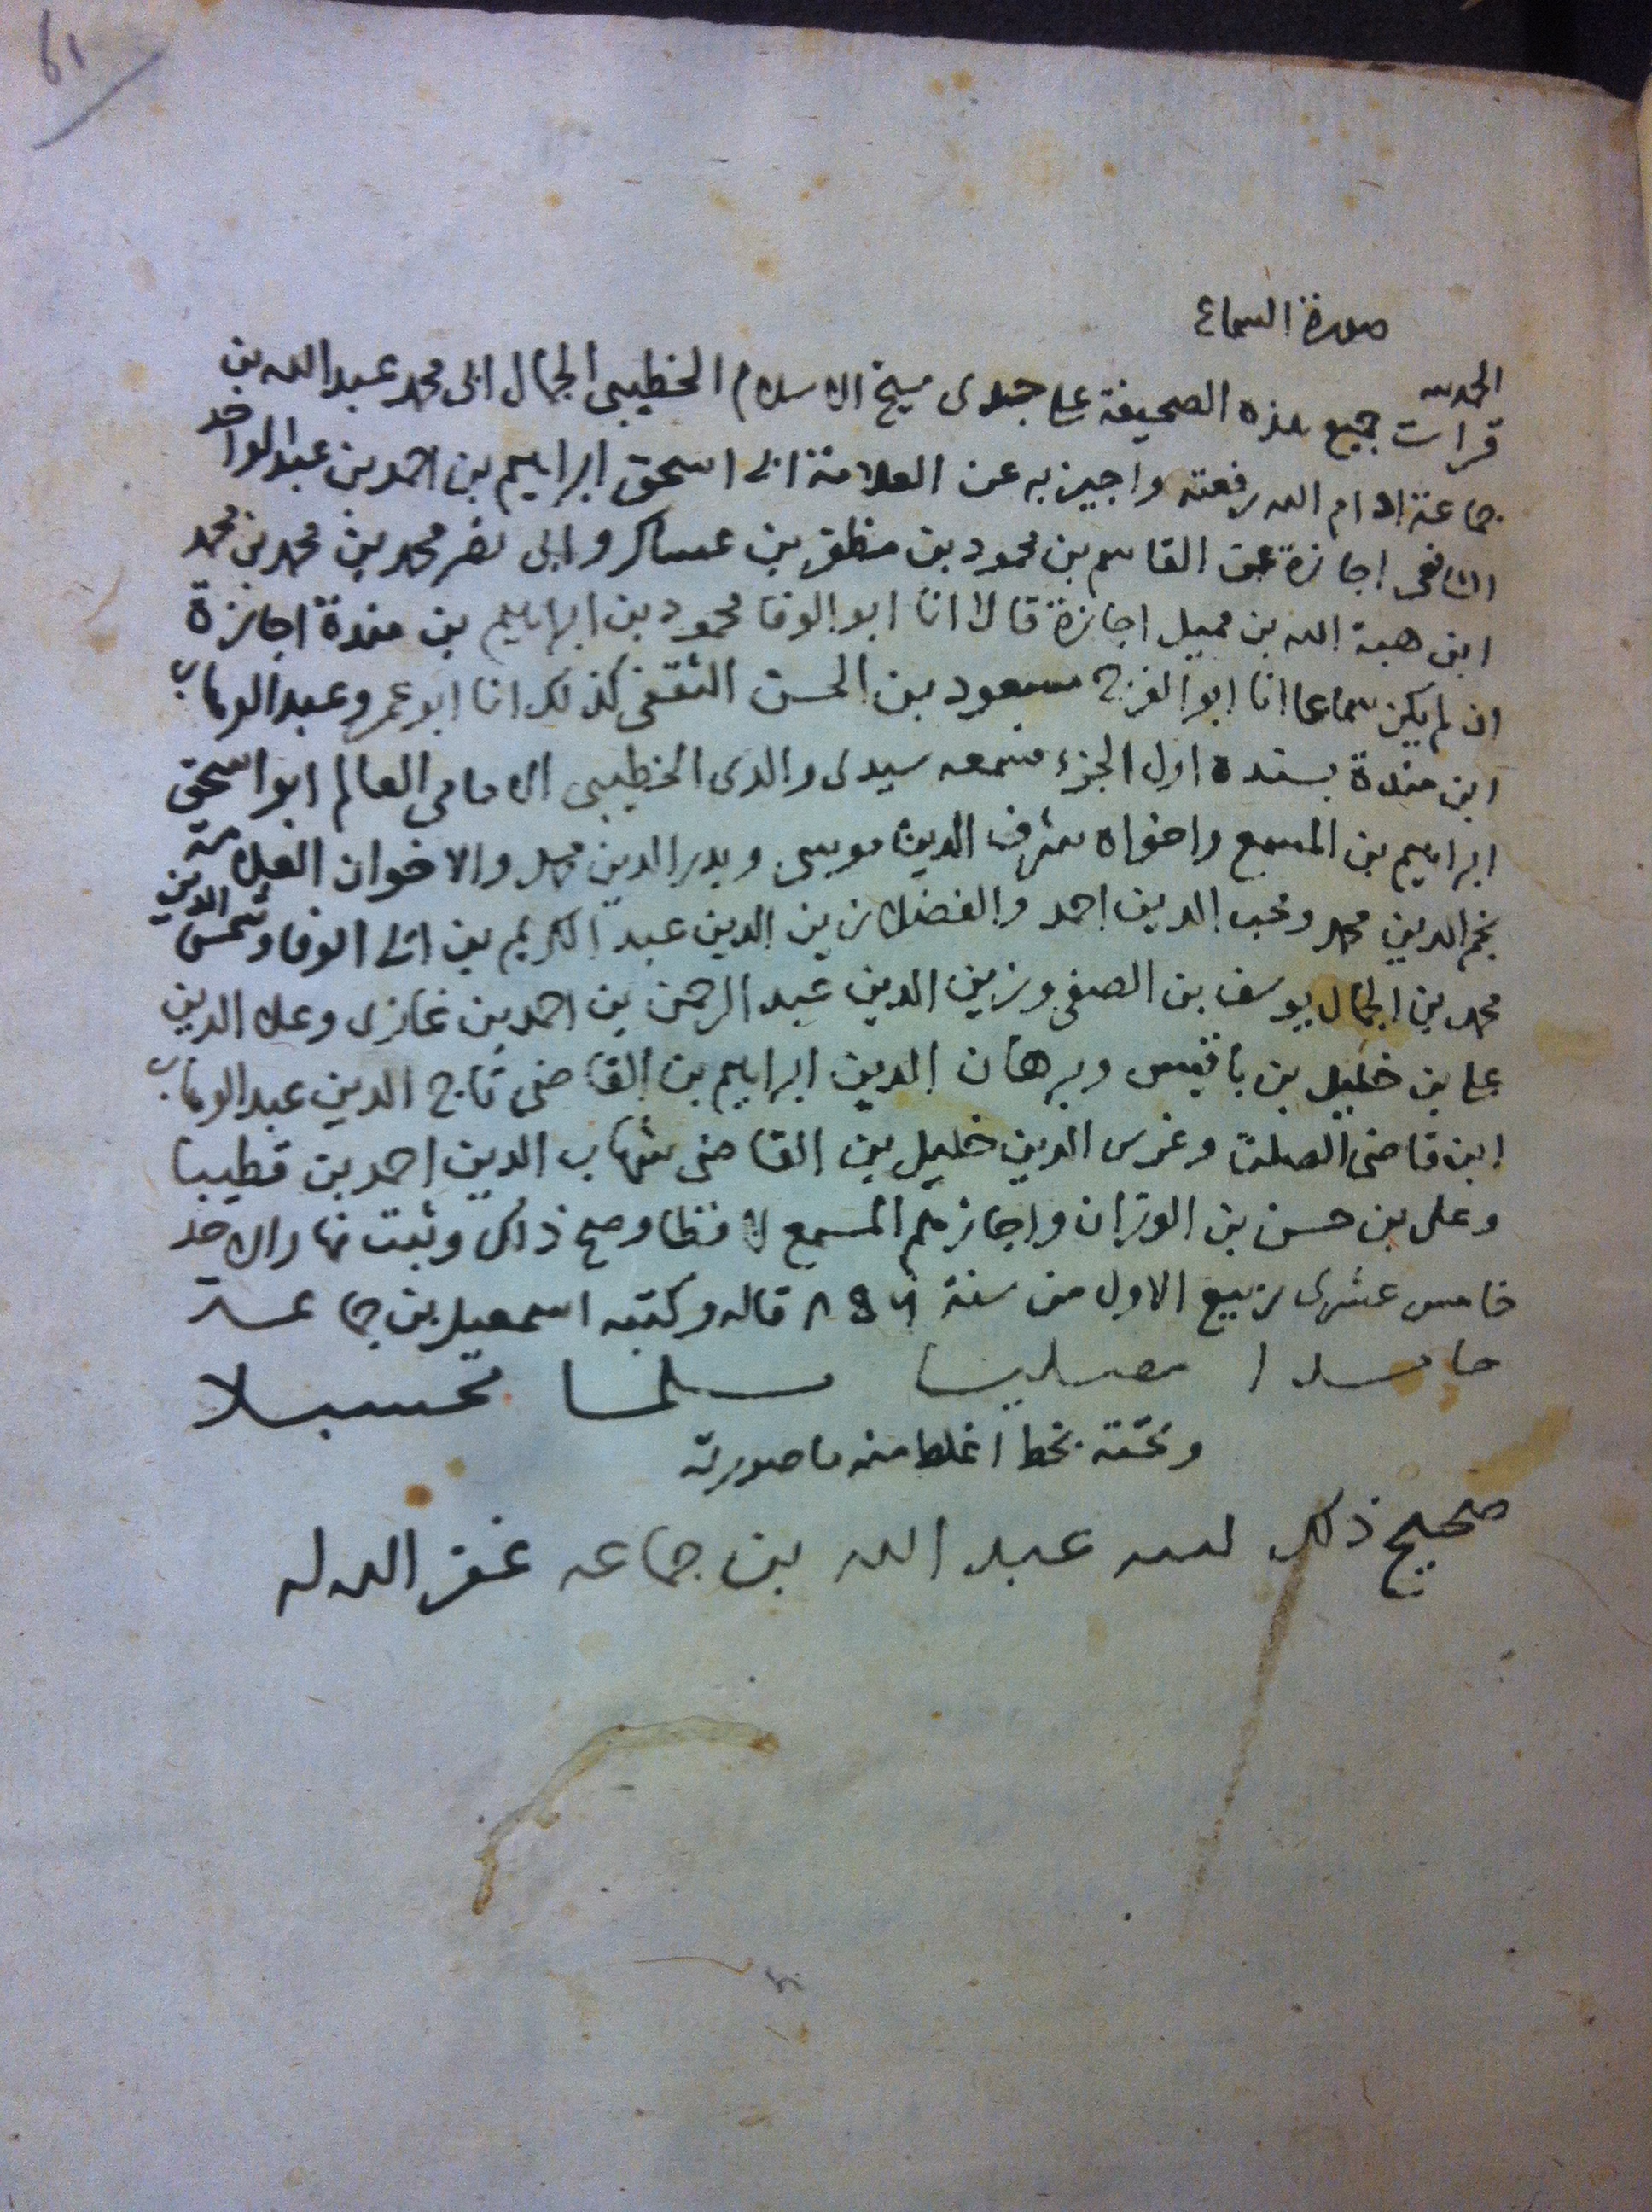 61
صورة السماع
الحمد لله
قرات جميع هذه الصحيفة على جدى شيخ الاسلام الخطيبى الجمال ابى محمد عبد الله بن
جماعة ادام الله رفعته واجيز به عن العلامة ابى اسحق ابراهيم بن احمد بن عبد الواحد
الشافعى اجازة عن القاسم بن محمود بن مظفر بن عساكر وابى نصر محمد بن محمد بن محمد
ابن هبة الله بن مميل اجازة قالا انا ابو الوفا محمود بن ابراهيم بن مندة اجازة
ان لم يكن سماعا انا ابو الفرج مسعود بن الحسن الثقفى كذلك انا ابو عمرو عبد الوهاب
ابن مندة بسنده اول الجزء فسمعه سيدى والدى الخطيبى الامامى العالم ابو اسحق
ابراهيم بن المسمع واخواه شرف الدين موسى وبدر الدين محمد والاخوان العلامة
نجم الدين محمد ومحب الدين احمد والفضلا زين الدين عبد الكريم بن ابى الوفا وشمس الدين
محمد بن الجمال يوسف بن الصفى وزين الدين عبد الرحمن بن احمد بن غازى وعلا الدين
على بن خليل بن وبرهان الدين ابراهيم بن القاضى تاج الدين عبد الوهاب
ابن قاضى الصلت وغرس الدين خليل بن القاضى شهاب الدين احمد بن قطيبا
وعلى بن حسن بن الوزان واجازهم المسمع لافظا وصح ذلك وثبت نهار الاحد
خامس عشرى ربيع الاول من سنة قاله وكتبه اسمعيل بن جماعة
حامدا مصليا مسلما محسبلا
وتحته بخط اغلظ منه ما صورته
صحيح ذلك كتبه عبد الله بن جماعه غفر الله له